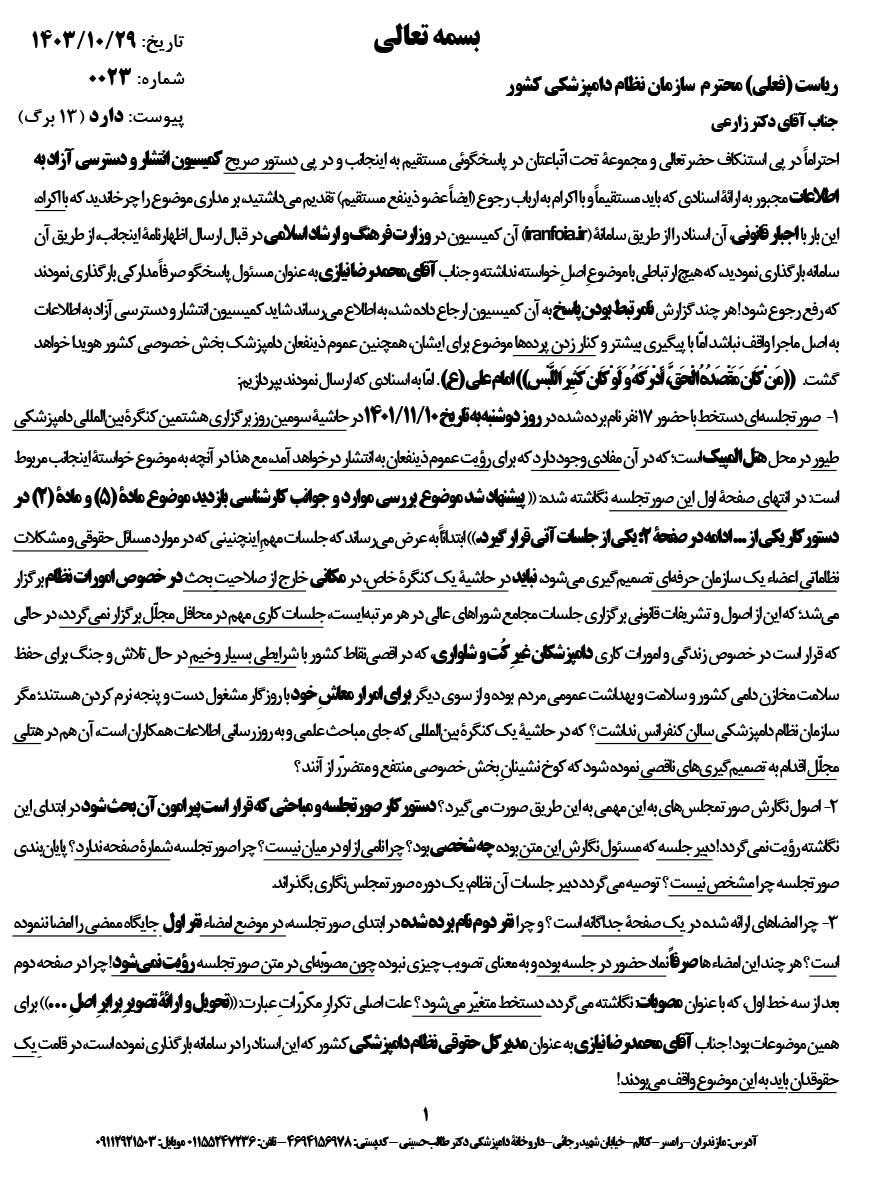 بسمه تعالی
تاریخ: ۱۴۰۳/۱۰/۲۹
شماره: ۰۰۲۳
پیوست: دارد (۱۳ برگ)
ریاست (فعلی) محترم سازمان نظام دامپزشکی کشور
جناب آقای دکتر زارعی
احتراماً در پی استنکاف حضرتعالی و مجموعهٔ تحت اتّباعتان در پاسخگوئی مستقیم به اینجانب و در پی دستور صریح کمیسیون انتشار و دسترسی آزاد به
اطلاعات مجبور به ارائهٔ اسنادی که باید مستقیماً و با اکرام به ارباب رجوع (ایضاً عضو ذینفع مستقیم) تقدیم می‌داشتید، بر مداری موضوع را چرخاندید که بااکراه،
این بار با اجبار قانونی، آن اسناد را از طریق سامانهٔ (iranfoia.ir) آن کمیسیون در وزارت فرهنگ و ارشاد اسلامی در قبال ارسال اظهارنامهٔ اینجانب، از طریق آن
سامانه بارگذاری نمودید، که هیچ ارتباطی با موضوعِ اصلِ خواسته نداشته و جناب آقای محمدرضا نیازی به عنوان مسئول پاسخگو صرفاً مدارکی بارگذاری نمودند
که رفع رجوع شود! هر چند گزارش نامرتبط بودن پاسخ به آن کمیسیون ارجاع داده شد، به اطلاع می‌رساند شاید کمیسیون انتشار و دسترسی آزاد به اطلاعات
به اصل ماجرا واقف نباشد امّا با پیگیری بیشتر و کنار زدن پرده‌ها موضوع برای ایشان، همچنین عموم ذینفعان دامپزشک بخش خصوصی کشور هویدا خواهد
گشت. ((مَن کَانَ مَقصَدُهُ الحَقَّ، أَدرَکَهُ وَ لَو کَانَ کَثِیرَ اللَّبس)) امام علی (ع). امّا به اسنادی که ارسال نمودند بپردازیم:
۱- صورتجلسه‌ای دستخط با حضور ۱۷ نفر نام برده شده در روز دوشنبه به تاریخ ۱۴۰۱/۱۱/۱۰ در حاشیهٔ سومین روز برگزاری هشتمین کنگرهٔ بین‌المللی دامپزشکی
طیور در محل هتل المپیک است؛ که در آن مفادی وجود دارد که برای رؤیت عموم ذینفعان به انتشار درخواهد آمد، مع هذا در آنچه به موضوع خواستهٔ اینجانب مربوط
است: در انتهای صفحهٔ اول این صورتجلسه نگاشته شده: ((پیشنهاد شد موضوع بررسی موارد و جوانب کارشناسی بازدید موضوع مادهٔ (۵) و مادهٔ (۲) در
دستور کار یکی از ... ادامه در صفحهٔ ۲: یکی از جلسات آتی قرار گیرد.)) ابتدائاً به عرض می‌رساند که جلسات مهمِ اینچنینی که در موارد مسائل حقوقی و مشکلات
نظاماتی اعضاء یک سازمان حرفه‌ای تصمیم‌گیری می‌شود، نباید در حاشیهٔ یک کنگرهٔ خاص، در مکانی خارج از صلاحیتِ بحث در خصوص امورات نظام برگزار
می‌شد؛ که این از اصول و تشریفات قانونی برگزاری جلسات مجامع شوراهای عالی در هر مرتبه‌ایست، جلسات کاری مهم در محافل مجلّل برگزار نمی‌گردد، در حالی
که قرار است در خصوص زندگی و امورات کاری دامپزشکان غیرِ کُت و شلواری، که در اقصی‌نقاط کشور با شرایطی بسیار وخیم در حال تلاش و جنگ برای حفظ
سلامت مخازن دامی کشور و سلامت و بهداشت عمومی مردم بوده و از سوی دیگر برای امرار معاشِ خود با روزگار مشغول دست و پنجه نرم کردن هستند؛ مگر
سازمان نظام دامپزشکی سالن کنفرانس نداشت؟ که در حاشیهٔ یک کنگرهٔ بین‌المللی که جای مباحث علمی و به روزرسانی اطلاعات همکاران است، آن هم در هتلی
مجلّل اقدام به تصمیم‌گیری‌های ناقصی نموده شود که کوخ نشینانِ بخش خصوصی منتفع و متضرّر از آنند؟
۲- اصول نگارش صورتمجلس‌های به این مهمی به این طریق صورت می‌گیرد؟ دستور کار صورتجلسه و مباحثی که قرار است پیرامون آن بحث شود در ابتدای این
نگاشته رؤیت نمی‌گردد! دبیر جلسه که مسئول نگارش این متن بوده چه شخصی بود؟ چرا نامی از او در میان نیست؟ چرا صورتجلسه شمارهٔ صفحه ندارد؟ پایان‌بندی
صورتجلسه چرا مشخص نیست؟ توصیه می‌گردد دبیر جلسات آن نظام، یک دوره صورتمجلس‌نگاری بگذراند.
۳- چرا امضاهای ارائه شده در یک صفحهٔ جداگانه است؟ و چرا نفر دوم نام برده شده در ابتدای صورتجلسه، در موضع امضاء نفر اول جایگاه ممضی را امضا ننموده
است؟ هر چند این امضاءها صرفاً نماد حضور در جلسه بوده و به معنای تصویب چیزی نبوده چون مصوّبه‌ای در متن صورتجلسه رؤیت نمی‌شود! چرا در صفحه دوم
بعد از سه خط اول، که با عنوان مصوبات: نگاشته می‌گردد، دستخط متغیّر می‌شود؟ علت اصلی تکرارِ مکرّراتِ عبارت: ((تحویل و ارائهٔ تصویرِ برابرِ اصلِ ...)) برای
همین موضوعات بود! جناب آقای محمدرضا نیازی به عنوان مدیر کل حقوقی نظام دامپزشکی کشور که این اسناد را در سامانه بارگذاری نموده است، در قامتِ یک
حقوقدان باید به این موضوع واقف می‌بودند!
۱
آدرس: مازندران – رامسر – کتالم – خیابان شهید رجائی – داروخانهٔ دامپزشکی دکتر طالب‌حسینی – کدپستی: ۴۶۹۴۱۵۶۹۷۸ – تلفن: ۰۱۱۵۵۲۴۷۲۳۶ موبایل: ۰۹۱۱۲۹۲۱۵۰۳